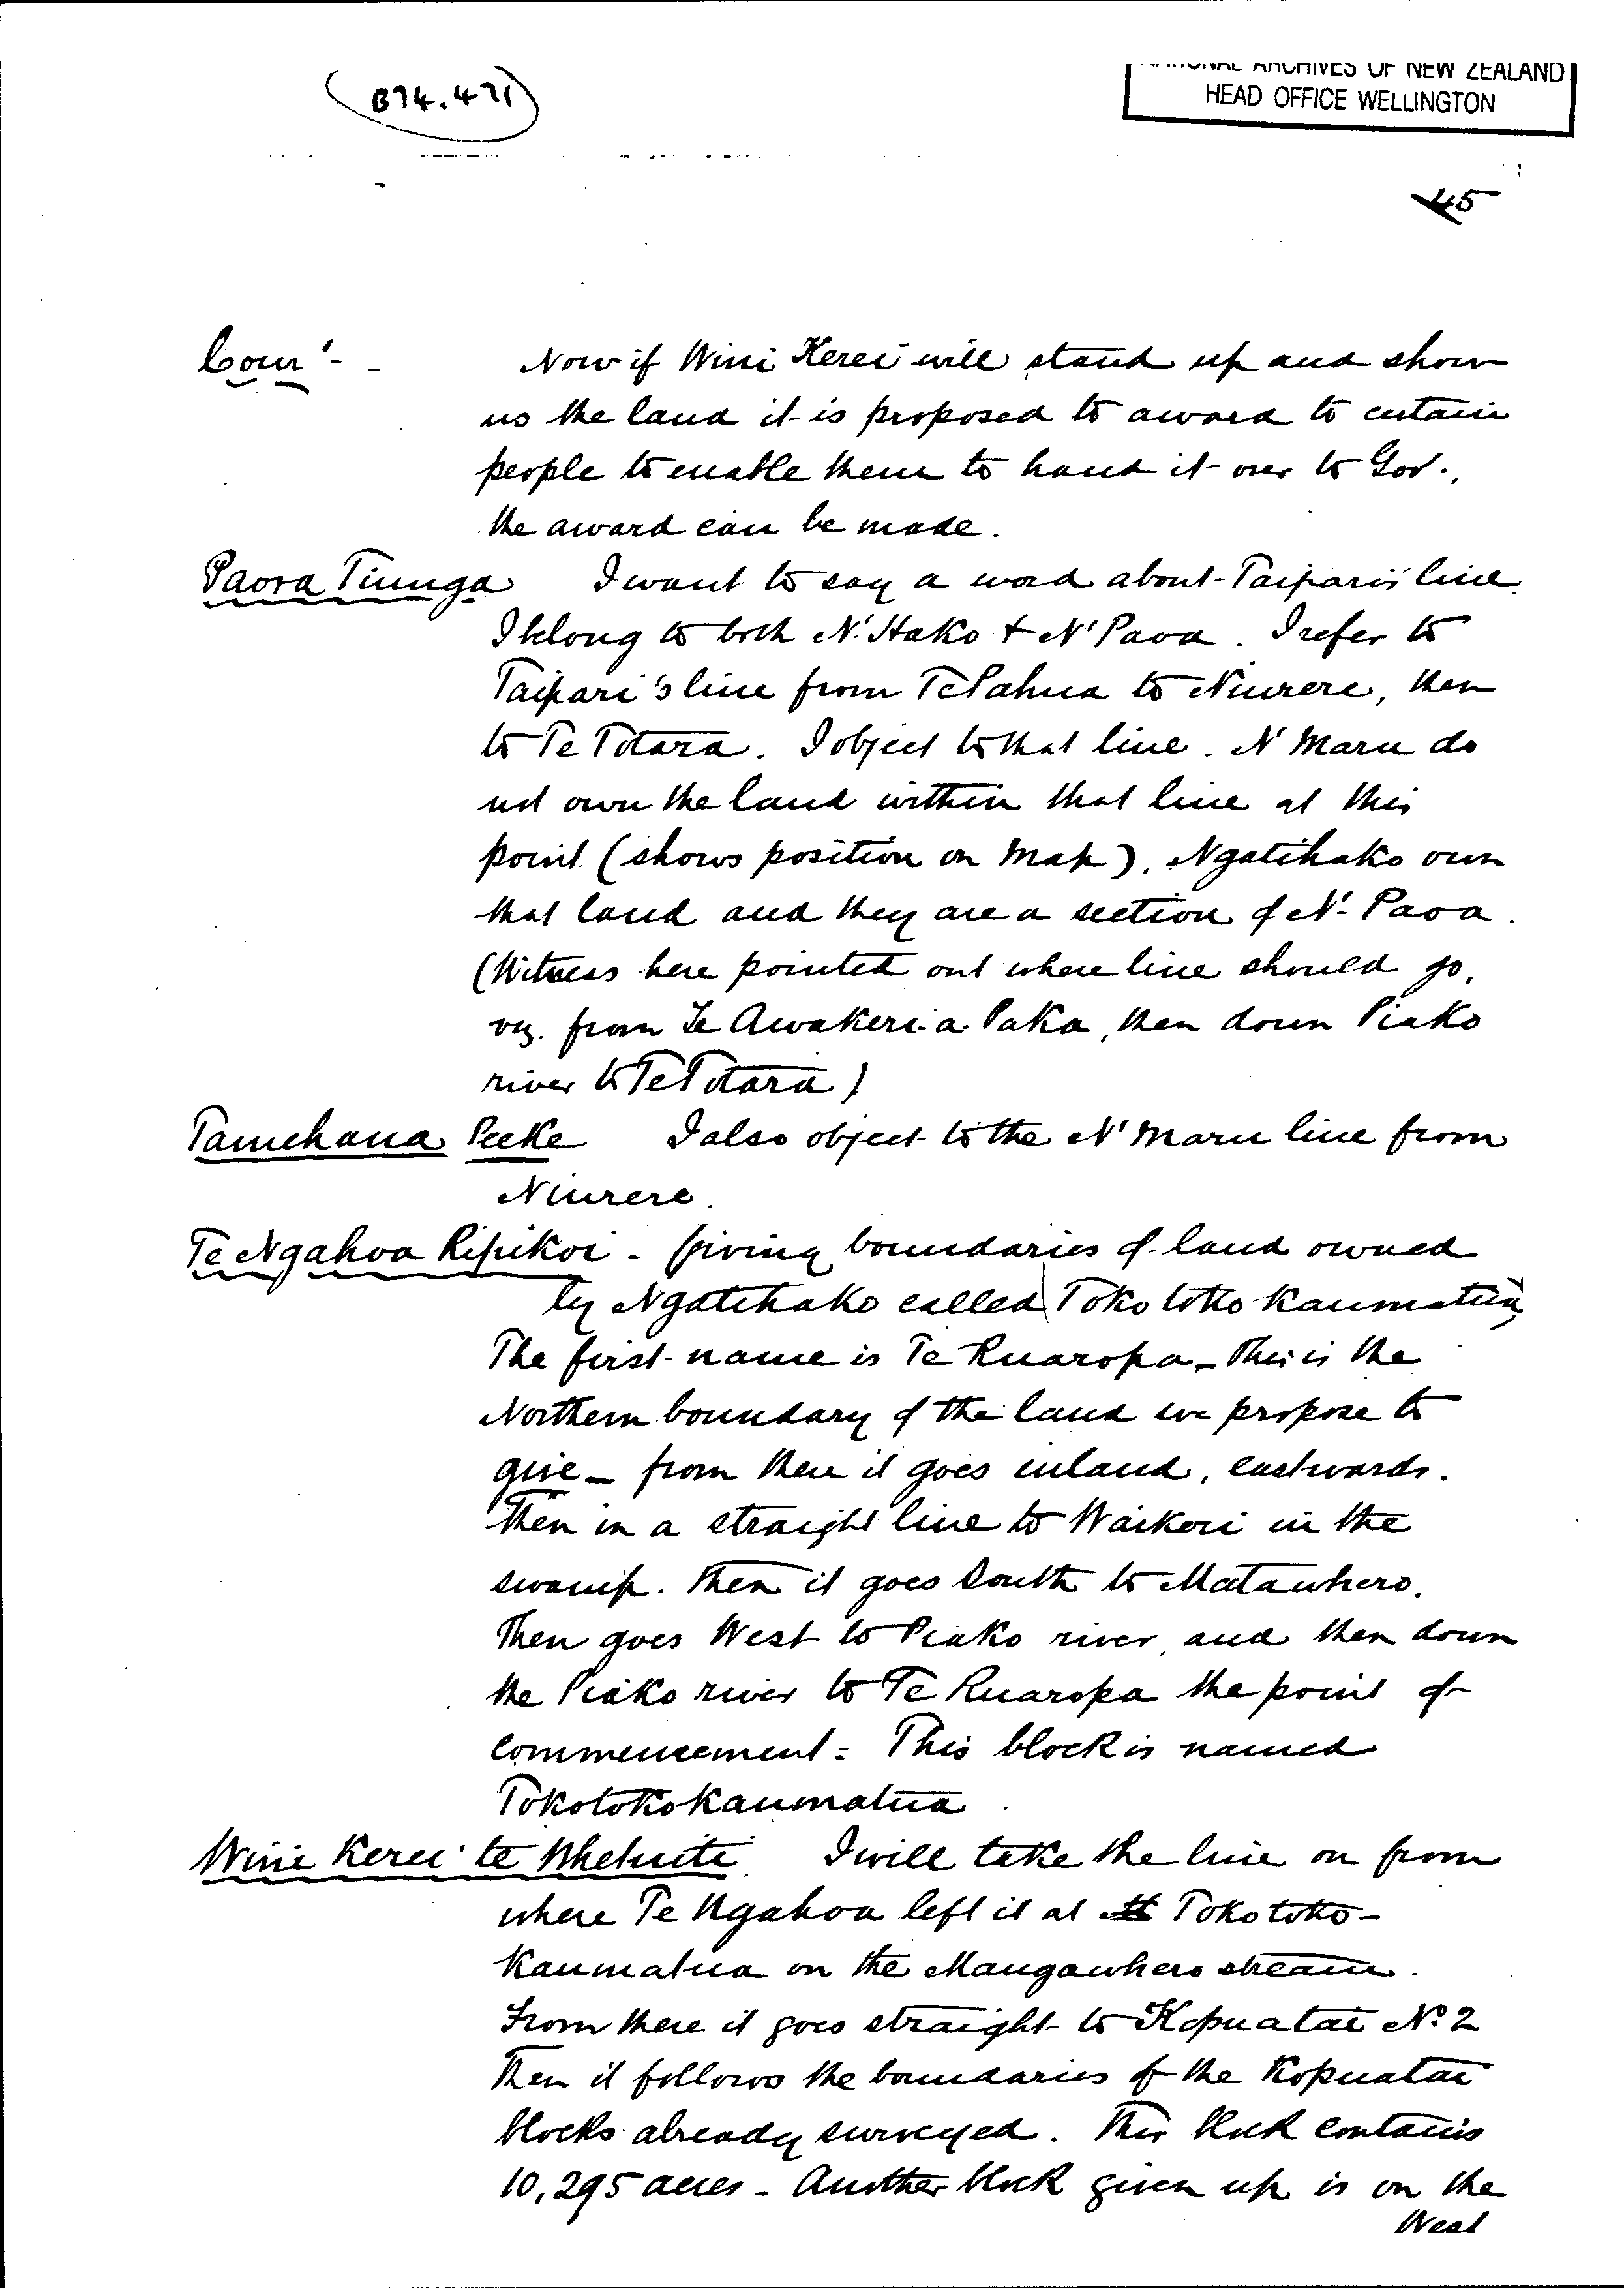 (B74.471)
NATIONAL ARCHIVES OF NEW ZEALAND
HEAD OFFICE WELLINGTON
45
Cour' - Now if Wini Kerei will stand up and show
us the land it is proposed to award to certain
people to enable them to hand it over to Gov.,
the award can be made.
Paora Tiunga I want to say a word about Taipari's line.
I belong to both N' Hako + N' Paoa. I refer to
Taipari's line from Te Pahua to Niurere, then
to Te Totara. I object to that line. N' Maru do
not own the land within that line at this
point (shows position on map). Ngatihako own
that land and they are a section of N' Paoa.
(Witness here pointed out where line should go,
viz. from Te Awakeri-a-Paka, then down Piako
river to Te Totara)
Tamehana Peeke I also object to the N' Maru line from
Niurere.
Te Ngahoa Ripikoi - Giving boundaries of land owned
by Ngatihako called Tokotoko Kaumatua,
The first name is Te Ruaropa - This is the
Northern boundary of the land we propose to
give - from there it goes inland, eastwards.
Then in a straight line to Waikori in the
swamp. Then it goes South to Matawhero.
Then goes West to Piako river, and then down
the Piako river to Te Ruaropa the point of
commencement. This block is named
Tokotokokaumatua.
Wini Kerei te Whetuiti I will take the line on from
where Te Ngahoa left it at Tokotoko-
kaumatua on the Mangawhero stream.
From there it goes straight to Kopuatai No. 2
Then it follows the boundaries of the Kopuatai
blocks already surveyed. This block contains
10,295 acres - Another block given up is on the
West